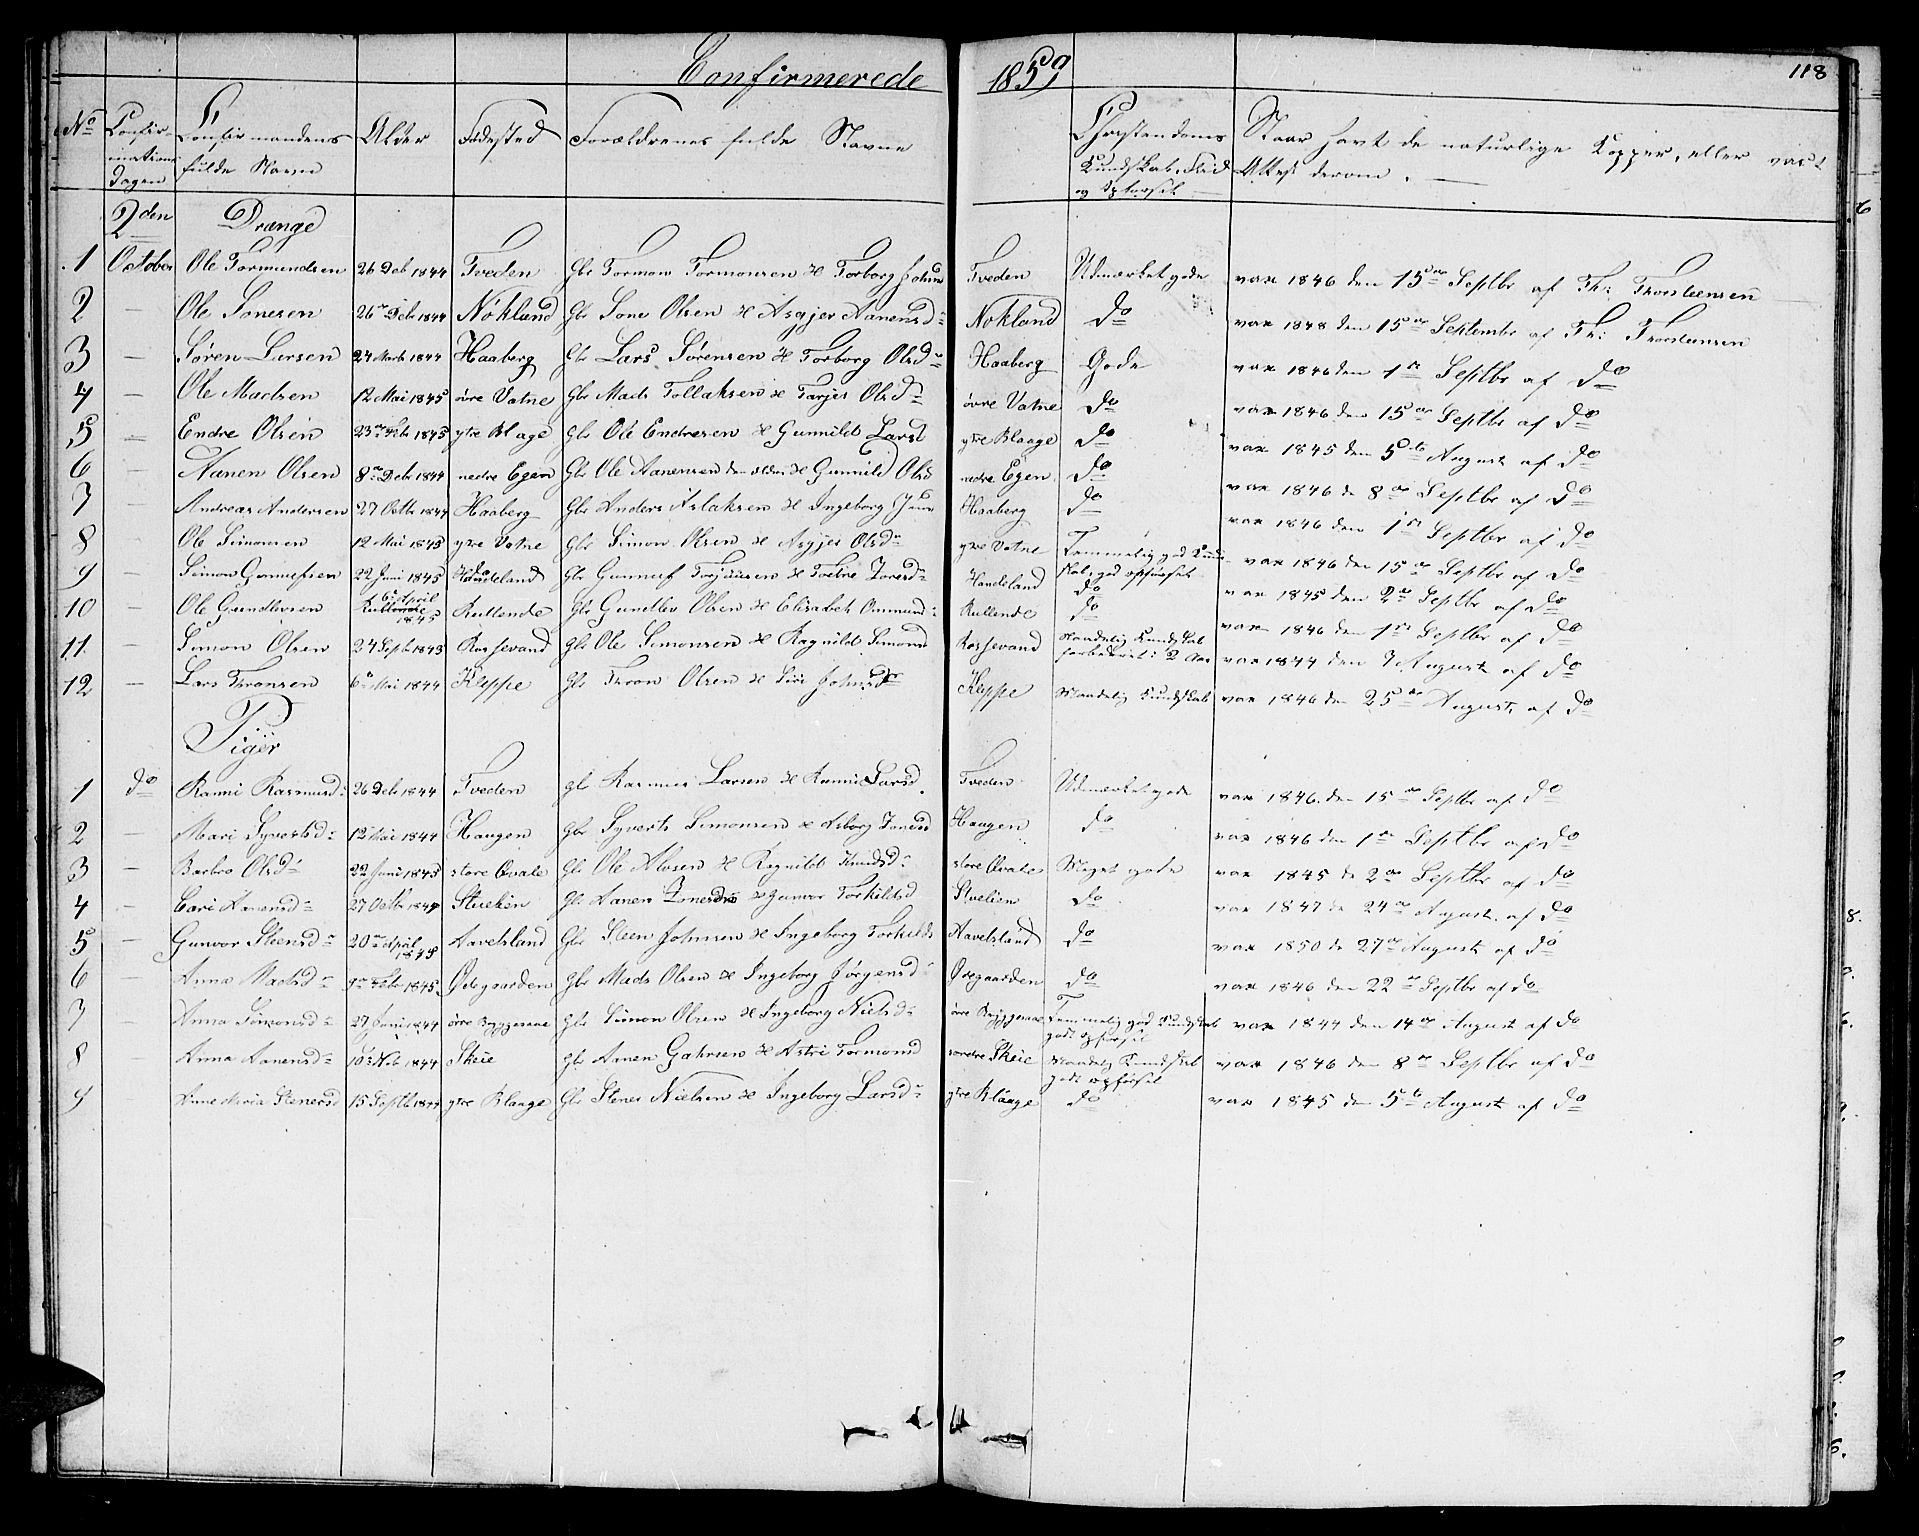 Confirmerede 1859 118
No Confirmations Dagen Confirmandens fulde Navn Alder Fødested Forældrenes fulde Navne Kundskab, Flid og Opførsel Naar havt de naturlige Kopper, eller vact Attest derom.
2den Drenge
1 October Ole Tormundsen 26 Deb 1844 Tveden Gbr Tormon Tormonsen & Torborg Johns Tveden Udmærket gode vax 1846 den 15de Septbr af Th: Thorsteensen
2 – Ole Sonesen 26de Debr 1844 Nökland Gbr Sone Olsen & Asgjer Aanensd Nökland do vax 1848 den 15de Septembr af Th: Thorsteensen
3 – Søren Larsen 24 Marts 1844 Haaberg Gbr Lars Sørensen & Torborg Olsd Haaberg Gode vax 1846 den 1ste Septbr af do
4 – Ole Madsen 12 Mai 1845 övre Vatne Gbr Mads Tollaksen & Tarjer Olsd övre Vatne do vax 1846 den 15de Septbr af do
5 – Endre Olsen 23de Febr 1845 ytre Blage Gbr Ole Endresen & Gunnild Larsd ytre Blaage do vax 1845 den 5te August af do
6 – Aanen Olsen 8de Debr 1844 nedre Egen Gbr Ole Aanensen den ældre & Gunnild Olsd nedre Egen do vax 1846 de 8de Septbr af do
7 Andreas Andersen 27 Octbr 1844 Haaberg Gbr Anders Aslaksen & Ingeborg Haaberg do vax 1846 den 1ste Septbr af do
8 – Ole Simonsen 12 Mai 1845 ytre Vatne Gbr Simon Olsen & Asgjer Olsd ytre Vatne Temmelig god Kundskab, god opførsel vax 1846 den 15de Septbr af do
9 – Simon Gunnufsen 22 Juni 1845 Handeland Gbr Gunnuf Torjussen & Torbor Zonesd Handeland do vax 1845 den 2de Septbr af do
10 – Ole Gundlevsen 6te April 1845 Rullende Gbr Gundlev Olsen & Elisabet Ommund Rullende do vax 1846 den 1ste Septbr af do
11 – Simon Olsen 24 Septb 1843 Rossevand Gbr Ole Simonsen & Ragnild Simonsd Rossevand Maadelig Kundskab forberedet i 2 Aar vax 1844 den 7 August af do
12 – Lars Thronsen 6te Mai 1844 Kleppe Gbr Thron Olsen & Siri Johnsd Kleppe Maadelig Kundskab vax 1846 den 25de August af do
Piger
1 do Ranni Rasmusd 26 Deb 1844 Tveden gbr Rasmus Larsen & Ranni Larsd Tveden Udmærket gode vax 1846 den 15de Septbr af do
2 – Mari Syvertsd 12 Mai 1844 Haugen Gbr Syvert Simonsen & Asborg Zonesd Haugen do vax 1846 den 1ste Septbr af do
3 – Barbro Olsd 22 Juni 1845 store Qvale Gbr Ole Alvsen & Ragnild Knudsd store Qvale Meget gode vax 1845 de 2de Septbr af do
4 – Cari Aanensd 27 Octbr 1844 Stuelien Gbr Aanen Zonesen & Gunvor Torkildsd Stuelien do vax 1847 de 24de August af do
5 – Gunvor Steensd 20de April 1845 Aavelsland Gbr Steen Johnsen & Ingeborg Torkilds Aavelsland do vax 1850 de 27de August af do
6 – Anna Madsd Febr 1845 Ødegaarden Gbr Mads Olsen & Ingeborg Jørgensd Ødegaarden do vax 1846 den 22de Septbr af do
7 – Anna Simonsd 27 Juni 1844 övre Bryggesaae Gbr Simon Olsen & Ingeborg Nielsd övre Bryggesaae Temmelig god Kundskab godt opførsel vax 1844 den 14de August af do
8 – Anna Aanensd 10de Nob 1844 Skeie Gbr Aanen Gahrsen & Astri Tormond søndre Skeie Maadelig Kundskab godt opførsel vax 1846 den 8de Septbr af do
9 – Anne Maria Stenersd 15 Septb 1844 ytre Blaage Gbr Stener Nielsen & Ingeborg Larsd ytre Blaage do vax 1845 den 5te August af do